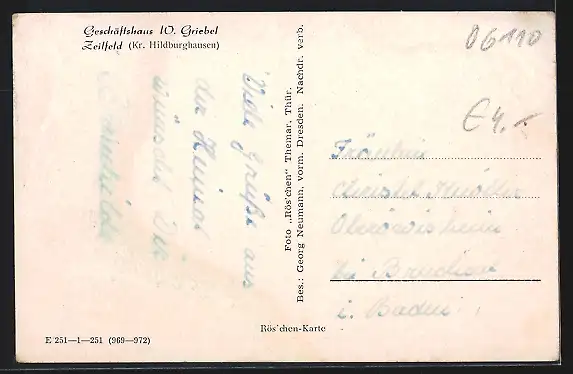 Geschäftshaus W. Griebel
Zeilfeld (Kr. Hildburghausen)
06110
€4,-
Viele Grüße aus
der Heimat
wünscht Dir
Foto „Rös'chen" Themar, Thür.
Bes.: Georg Neumann, vorm. Dresden. Nachdr. verb.
Fräulein
Christel Müller
Oberöwisheim
bei Bruchsal
i. Baden
Rös'chen-Karte
E 251—1—251 (969—972)